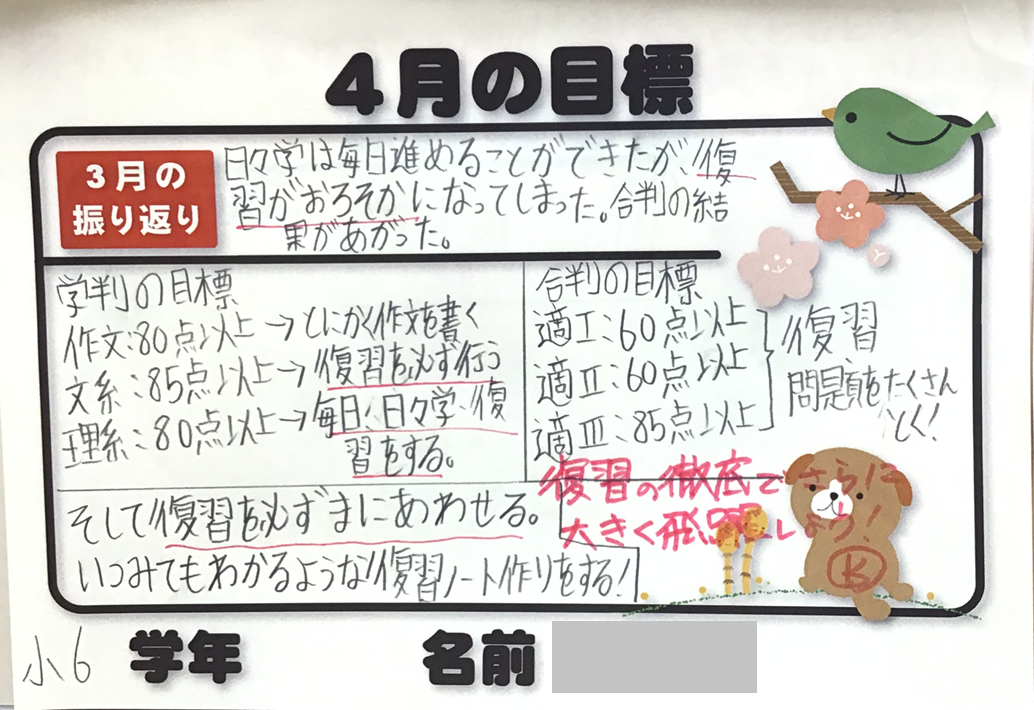 4月の目標
3月の
振り返り
日々学は毎日進めることができたが、復
習がおろそかになってしまった。合判の結
果があがった。
学判の目標
作文:80点以上→とにかく作文を書く
文系:85点以上→復習を必ず行う
理系:80点以上→毎日、日々学、復
習をする。
合判の目標
適Ⅰ:60点以上
適Ⅱ:60点以上
適Ⅲ:85点以上
復習
問題をたくさん
とく!
そして復習を必ずまにあわせる。
いつみてもわかるような復習ノート作りをする!
復習の徹底でさらに
大きく飛躍しよう!
K
小6 学年 名前